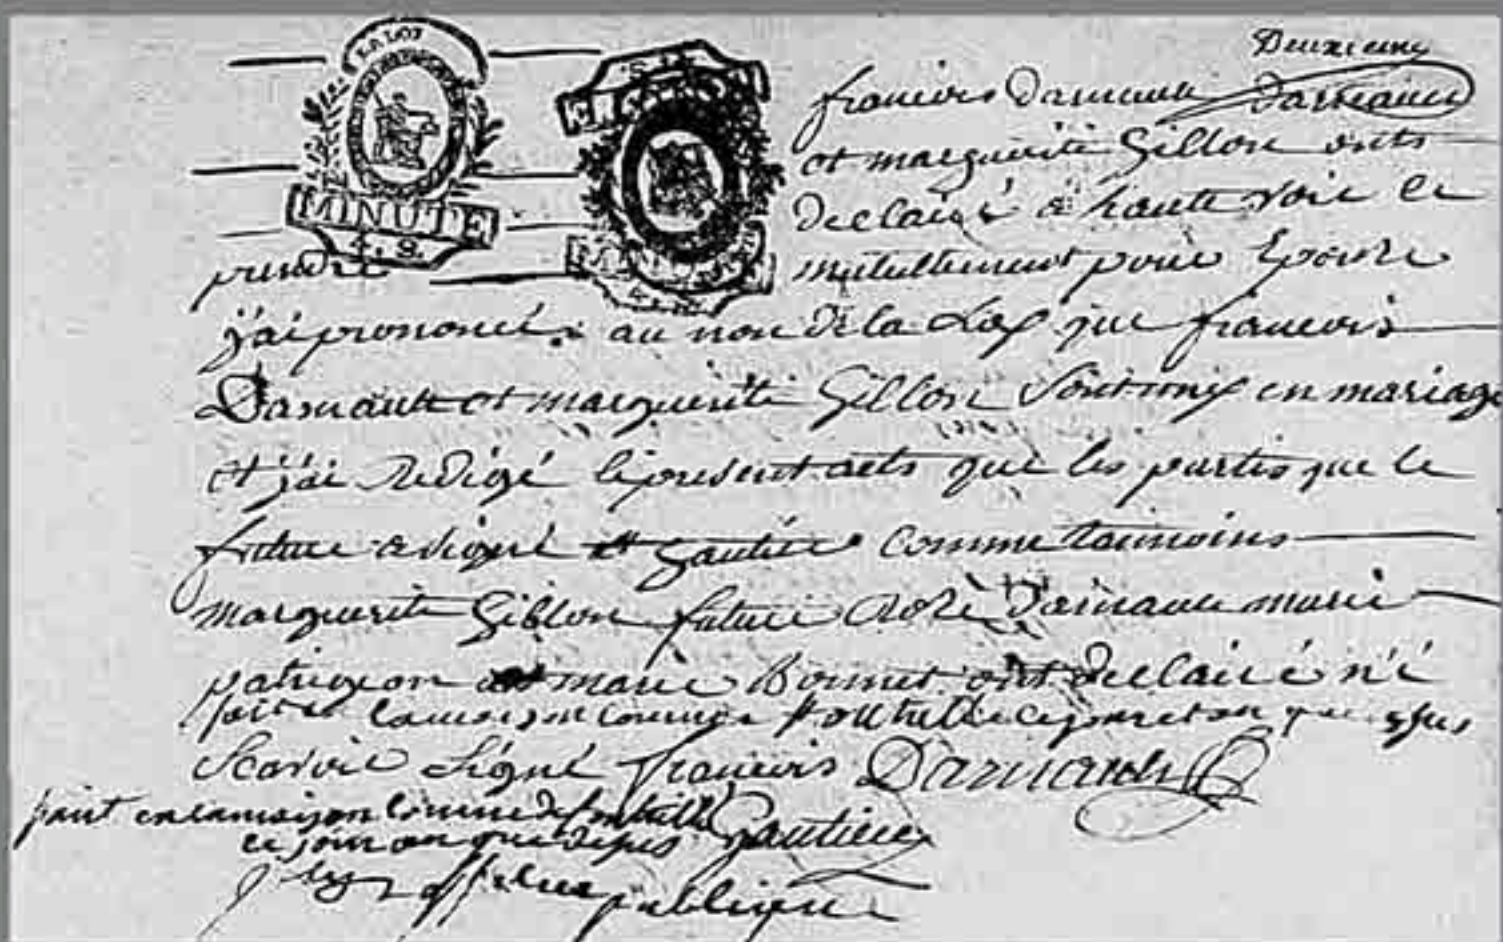 Deuxieme
LA LOI
francois Darnault Darnault
et marguerite Gillon onts
MINUTE
declairé a haute voie ce
prendre mutullement pour Epoux
j'ai prononcé au non de la Loy que francois
Darnault et marguerite Gillon sont uny en mariage
et j'ai Redigé le present acts que les partis que le
future a signé et gautier comme temoins
marguerite Gillon future Darnault marie
patrigeon et marie Bonnet ont declairé n'é
fait la maison commune ce jour et an que
Scavoir Signé francois Darnault
fait en la maison commune de Gautier
ce jour an que depus
officier publique